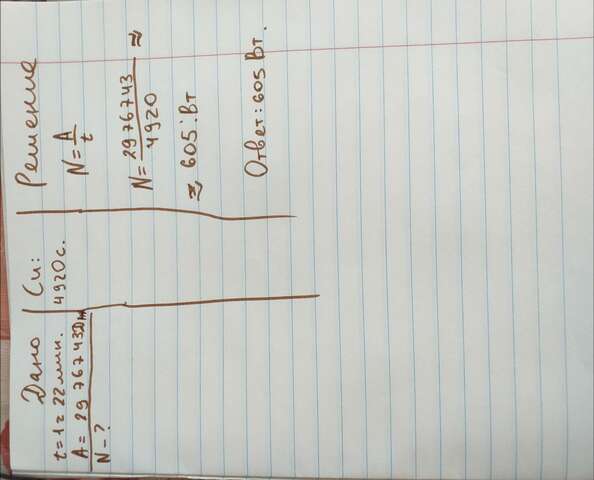 Дано
t=1ч 22мин.
A= 2976743Дж
N-?
Си:
4920с.
Решение
N=A/t
N=2976743/4920≈
≈605 Вт
Ответ: 605 Вт.